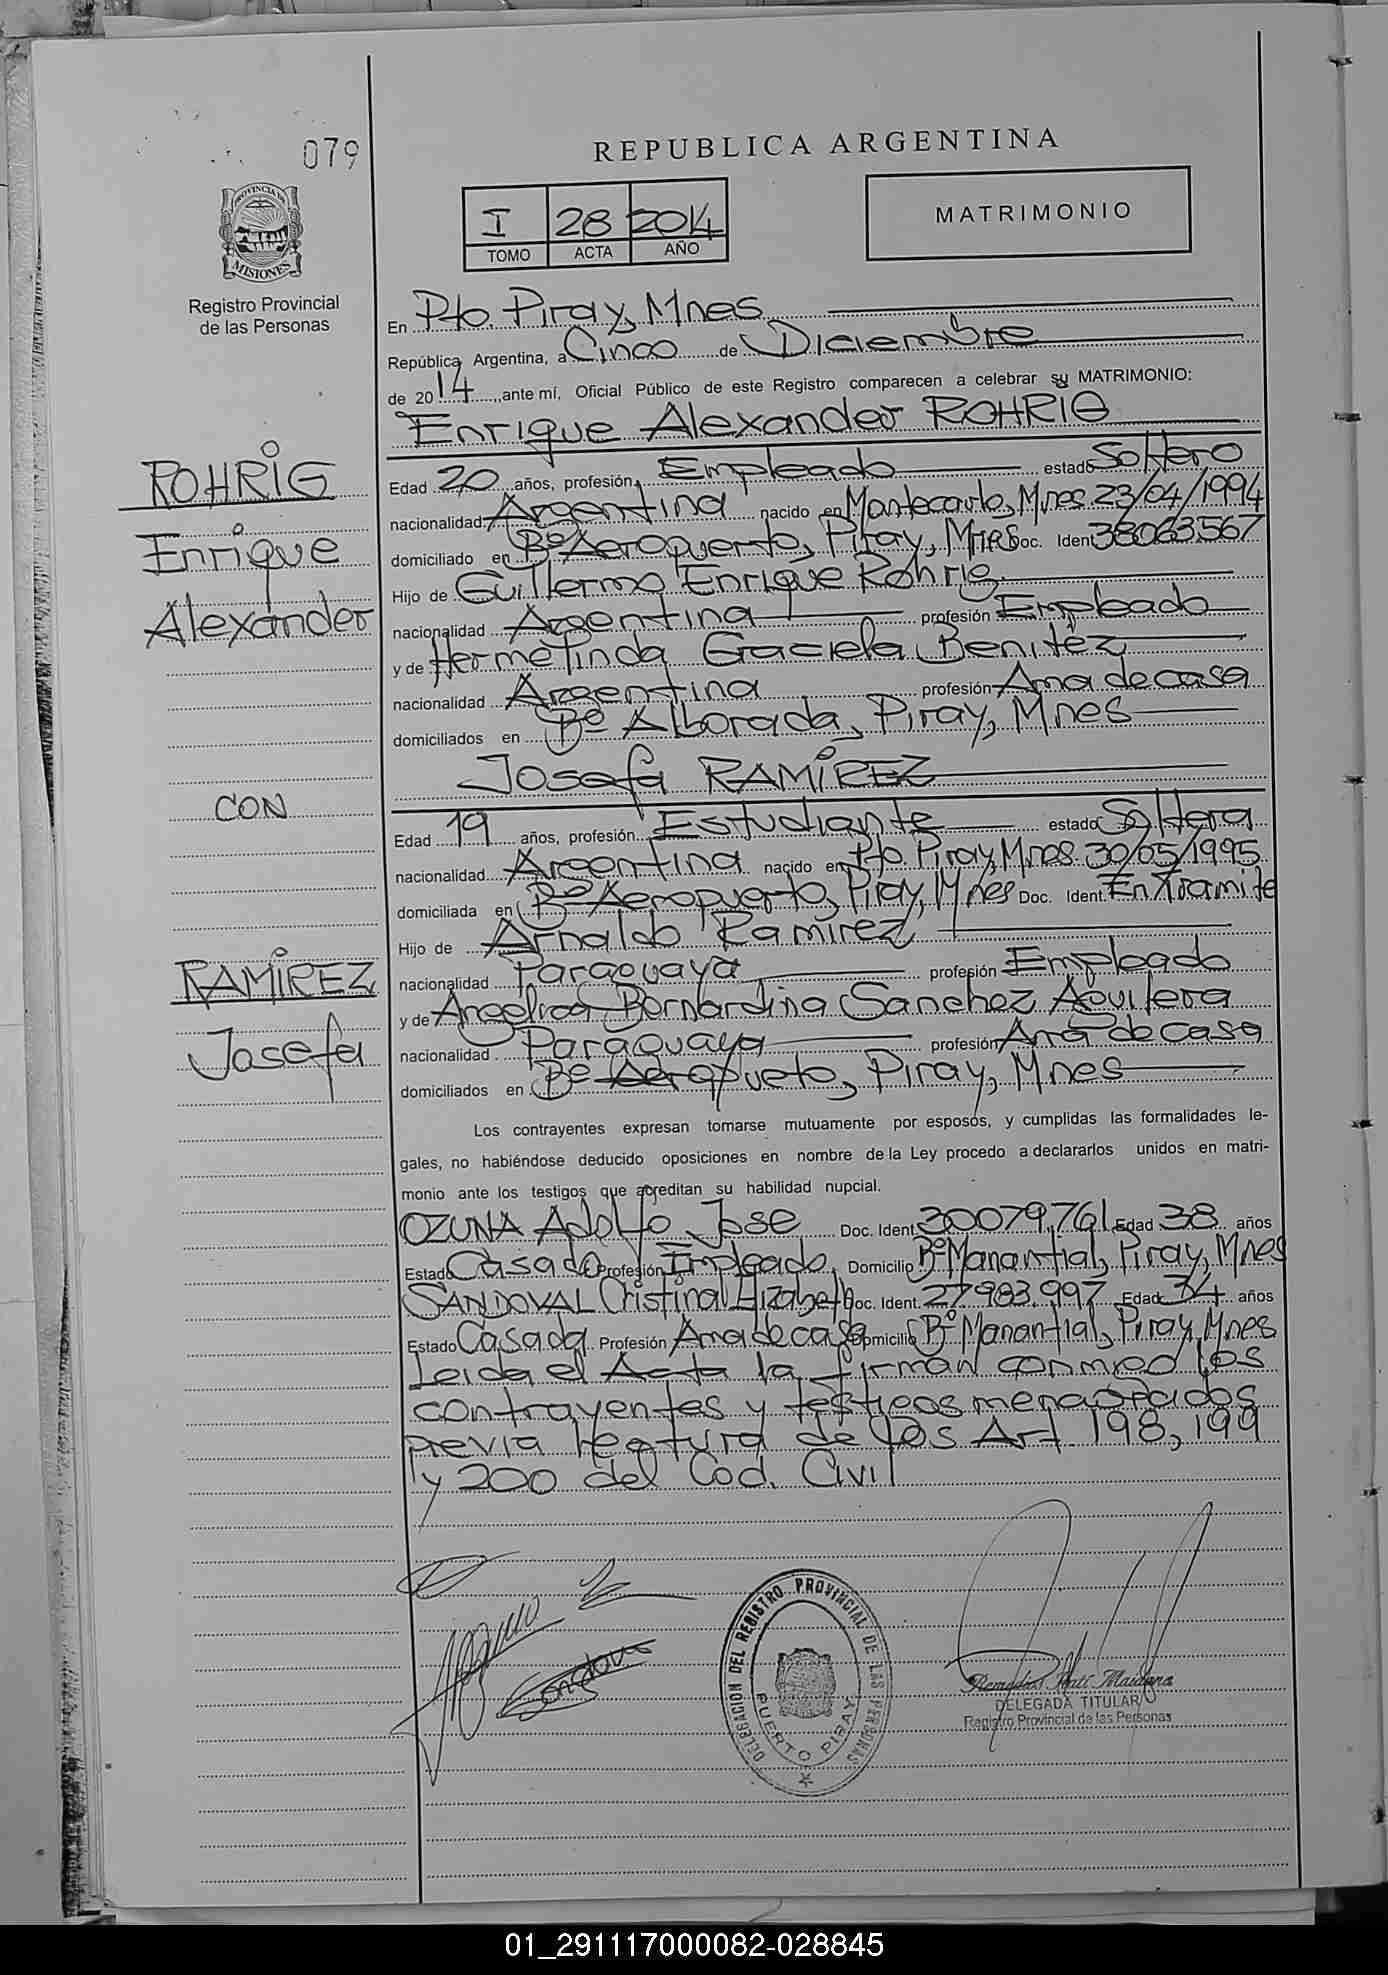 079
REPUBLICA ARGENTINA
PROVINCIA DE
MISIONES
Registro Provincial
de las Personas
I 28 2014
TOMO ACTA AÑO
MATRIMONIO
En Pto. Piray, Mnes
República Argentina, a Cinco de Diciembre
de 20 14 ante mí, Oficial Público de este Registro comparecen a celebrar su MATRIMONIO:
Enrique Alexander ROHRIG
ROHRIG
Enrique
Alexander
Edad 20 años, profesión Empleado estado Soltero
nacionalidad Argentina nacido en Montecarlo, Mnes 23/04/1994
domiciliado en Bº Aeropuerto, Piray, Mnes Doc. Ident 38063567
Hijo de Guillermo Enrique Rohrig
nacionalidad Argentina profesión Empleado
y de Hermelinda Graciela Benitez
nacionalidad Argentina profesión Ama de casa
domiciliados en Bº Alborada, Piray, Mnes
Josefa RAMÍREZ
CON
Edad 19 años, profesión Estudiante estado Soltera
nacionalidad Argentina nacido en Pto. Piray, Mnes 30/05/1995
domiciliada en Bº Aeropuerto, Piray, Mnes Doc. Ident. En Tramite
Hijo de Arnaldo Ramirez
RAMÍREZ
Josefa
nacionalidad Paraguaya profesión Empleado
y de Angelica Bernardina Sanchez Aguilera
nacionalidad Paraguaya profesión Ama de casa
domiciliados en Bº Aeropueto, Piray, Mnes
Los contrayentes expresan tomarse mutuamente por esposos, y cumplidas las formalidades le-
gales, no habiéndose deducido oposiciones en nombre de la Ley procedo a declararlos unidos en matri-
monio ante los testigos que acreditan su habilidad nupcial.
OZUNA Adolfo Jose Doc. Ident 30079.761 Edad 38 años
Estado Casado Profesión Empleado Domicilio Bº Manantial, Piray, Mnes
SANDOVAL Cristina Elizabeth Doc. Ident. 27983.997 Edad 34 años
Estado Casada Profesión Ama de casa Domicilio Bº Manantial, Piray, Mnes
Leida el Acta la firman conmigo los
contrayentes y testigos mencionados
previa lectura de los Art. 198, 199
y 200 del Cod. Civil
DELEGACION DEL REGISTRO PROVINCIAL DE LAS PERSONAS
PUERTO PIRAY
DELEGADA TITULAR
Registro Provincial de las Personas
01_291117000082-028845